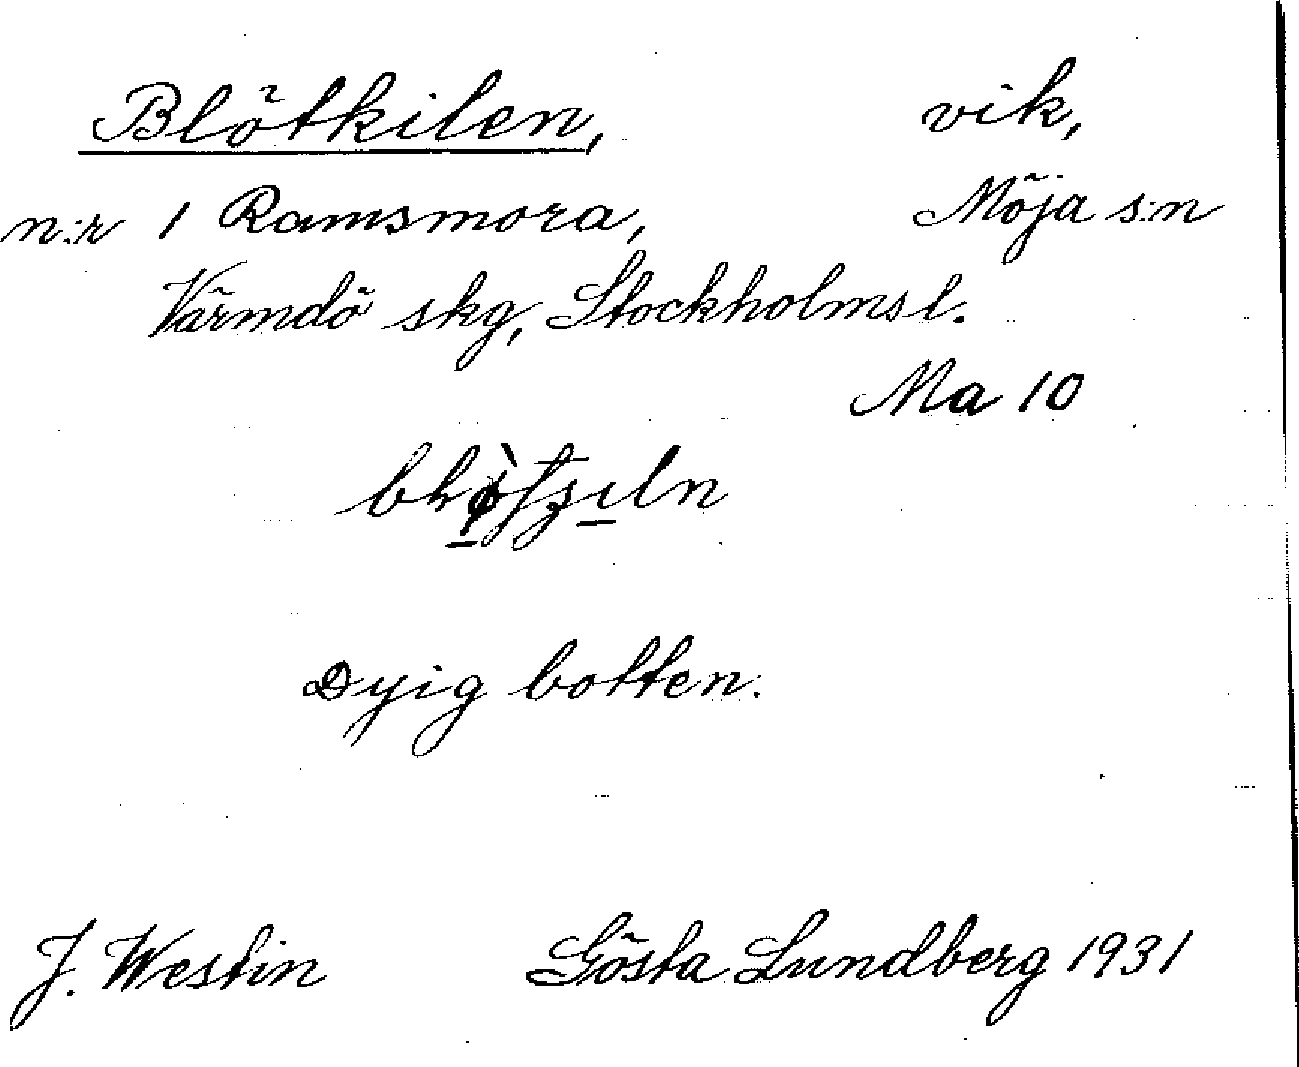 Blötkilen, vik,
n:r 1 Ramsmora, Möja s:n
Värmdö skg, Stockholms l.
Ma 10
Dyig botten.
J. Westin Gösta Lundberg 1931